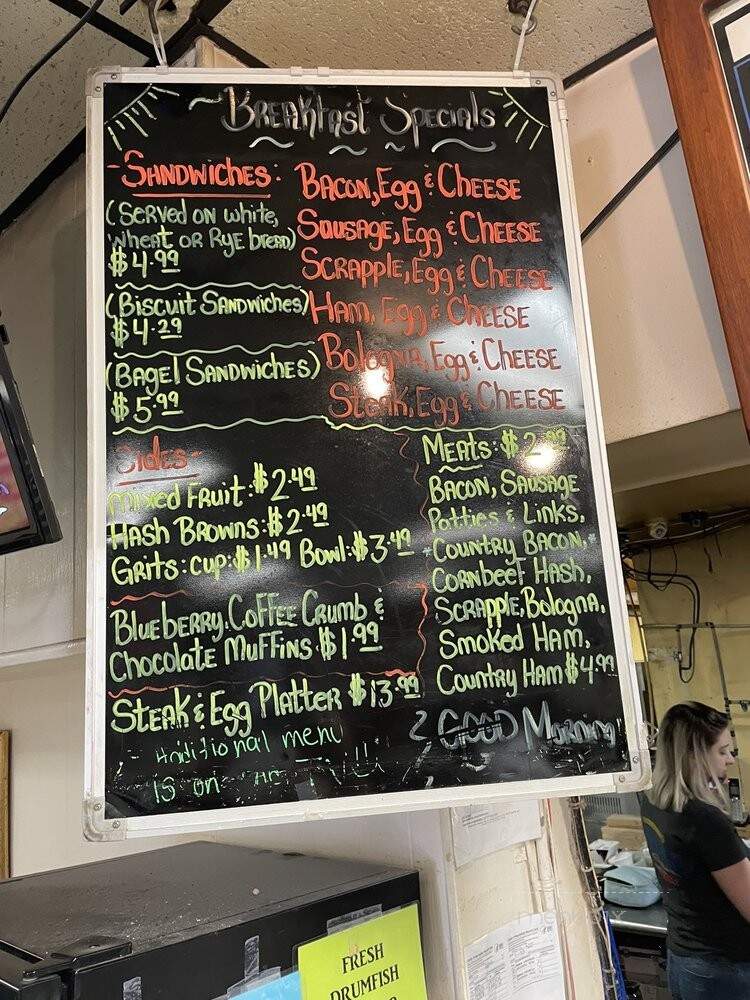 Breakfast Specials
-Sandwiches:
(Served on white,
wheat or Rye bread)
$4.99
(Biscuit Sandwiches)
$4.29
(Bagel Sandwiches)
$5.99
Bacon, Egg & Cheese
Sausage, Egg & Cheese
Scrapple, Egg & Cheese
Ham, Egg & Cheese
Bologna, Egg & Cheese
Steak, Egg & Cheese
Sides-
Mixed Fruit: $2.49
Hash Browns: $2.49
Grits: cup: $1.49 Bowl: $3.49
Blueberry, Coffee Crumb &
Chocolate Muffins $1.99
Steak & Egg Platter $13.99
Additional menu
is on
Meats: $2.99
Bacon, Sausage
Patties & Links,
*Country Bacon,*
Cornbeef Hash,
Scrapple, Bologna,
Smoked Ham,
Country Ham $4.99
GOOD Morning
FRESH
DRUMFISH